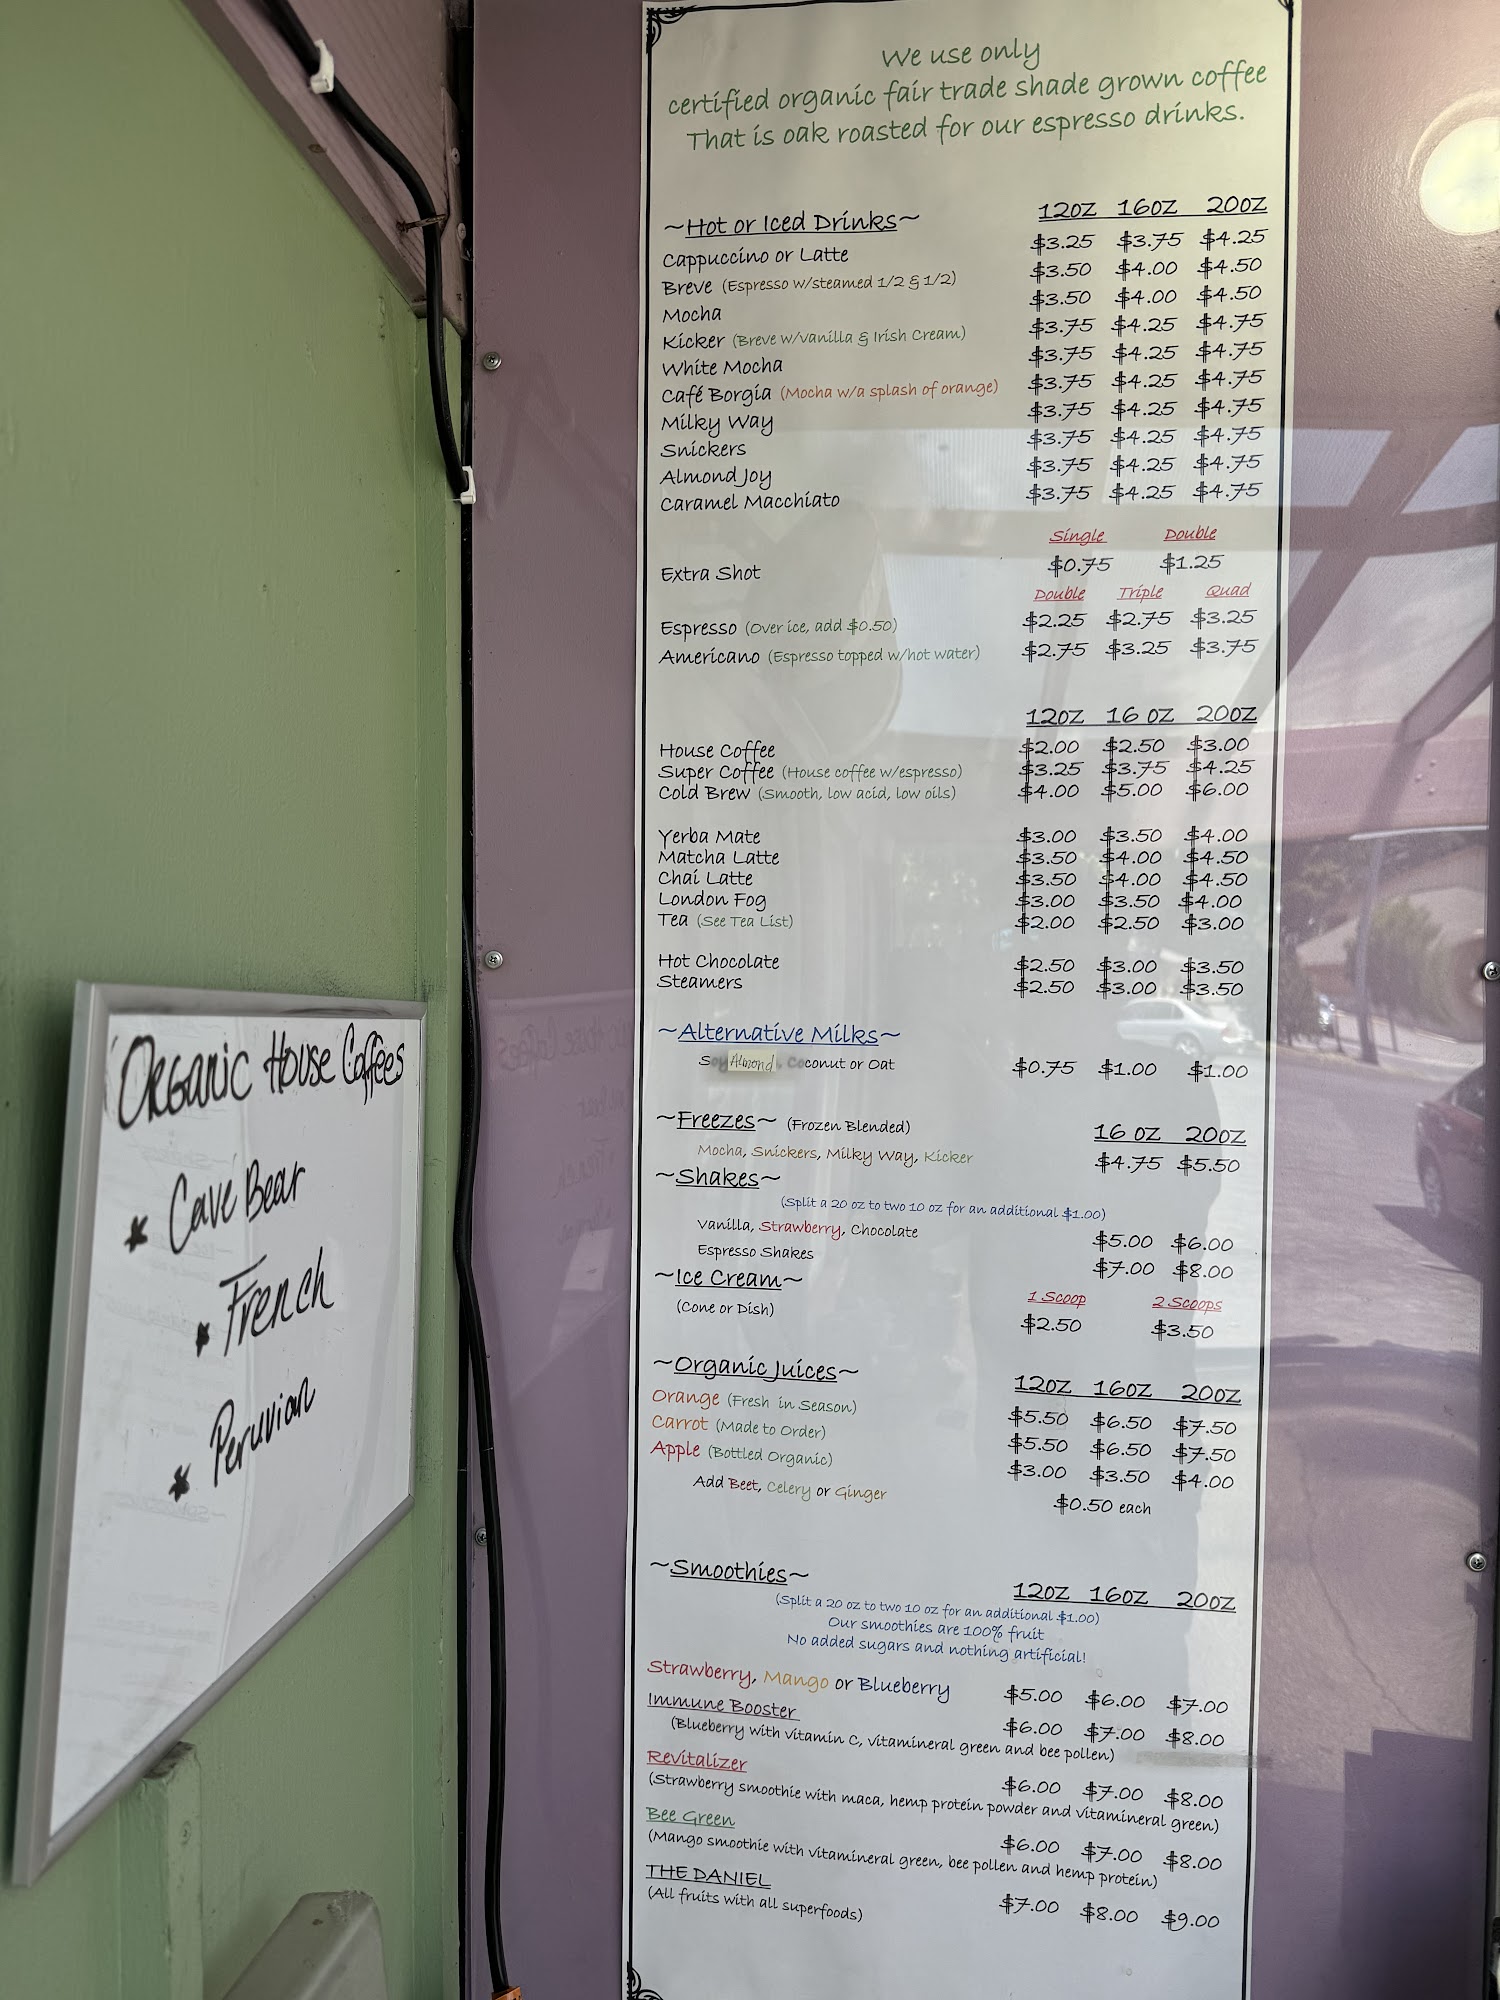 We use only
certified organic fair trade shade grown coffee
That is oak roasted for our espresso drinks.
~Hot or Iced Drinks~ 12OZ 16OZ 20OZ
Cappuccino or Latte $3.25 $3.75 $4.25
Breve (Espresso w/steamed 1/2 & 1/2) $3.50 $4.00 $4.50
Mocha $3.50 $4.00 $4.50
Kicker (Breve w/vanilla & Irish Cream) $3.75 $4.25 $4.75
White Mocha $3.75 $4.25 $4.75
Café Borgia (Mocha w/a splash of orange) $3.75 $4.25 $4.75
Milky Way $3.75 $4.25 $4.75
Snickers $3.75 $4.25 $4.75
Almond Joy $3.75 $4.25 $4.75
Caramel Macchiato $3.75 $4.25 $4.75
Single Double
Extra Shot $0.75 $1.25
Double Triple Quad
Espresso (Over ice, add $0.50) $2.25 $2.75 $3.25
Americano (Espresso topped w/hot water) $2.75 $3.25 $3.75
12OZ 16 OZ 20OZ
House Coffee $2.00 $2.50 $3.00
Super Coffee (House coffee w/espresso) $3.25 $3.75 $4.25
Cold Brew (Smooth, low acid, low oils) $4.00 $5.00 $6.00
Yerba Mate $3.00 $3.50 $4.00
Matcha Latte $3.50 $4.00 $4.50
Chai Latte $3.50 $4.00 $4.50
London Fog $3.00 $3.50 $4.00
Tea (See Tea List) $2.00 $2.50 $3.00
Hot Chocolate $2.50 $3.00 $3.50
Steamers $2.50 $3.00 $3.50
~Alternative Milks~
Soy Almond, Coconut or Oat $0.75 $1.00 $1.00
~Freezes~ (Frozen Blended) 16 OZ 20OZ
Mocha, Snickers, Milky Way, Kicker $4.75 $5.50
~Shakes~
(Split a 20 oz to two 10 oz for an additional $1.00)
Vanilla, Strawberry, Chocolate $5.00 $6.00
Espresso Shakes $7.00 $8.00
~Ice Cream~ 1 Scoop 2 Scoops
(Cone or Dish) $2.50 $3.50
~Organic Juices~ 12OZ 16OZ 20OZ
Orange (Fresh in Season) $5.50 $6.50 $7.50
Carrot (Made to Order) $5.50 $6.50 $7.50
Apple (Bottled Organic) $3.00 $3.50 $4.00
Add Beet, Celery or Ginger $0.50 each
~Smoothies~ 12OZ 16OZ 20OZ
(Split a 20 oz to two 10 oz for an additional $1.00)
Our smoothies are 100% fruit
No added sugars and nothing artificial!
Strawberry, Mango or Blueberry $5.00 $6.00 $7.00
Immune Booster $6.00 $7.00 $8.00
(Blueberry with vitamin C, vitamineral green and bee pollen)
Revitalizer $6.00 $7.00 $8.00
(Strawberry smoothie with maca, hemp protein powder and vitamineral green)
Bee Green $6.00 $7.00 $8.00
(Mango smoothie with vitamineral green, bee pollen and hemp protein)
THE DANIEL $7.00 $8.00 $9.00
(All fruits with all superfoods)
Organic House Coffees
* Cave Bear
* French
* Peruvian